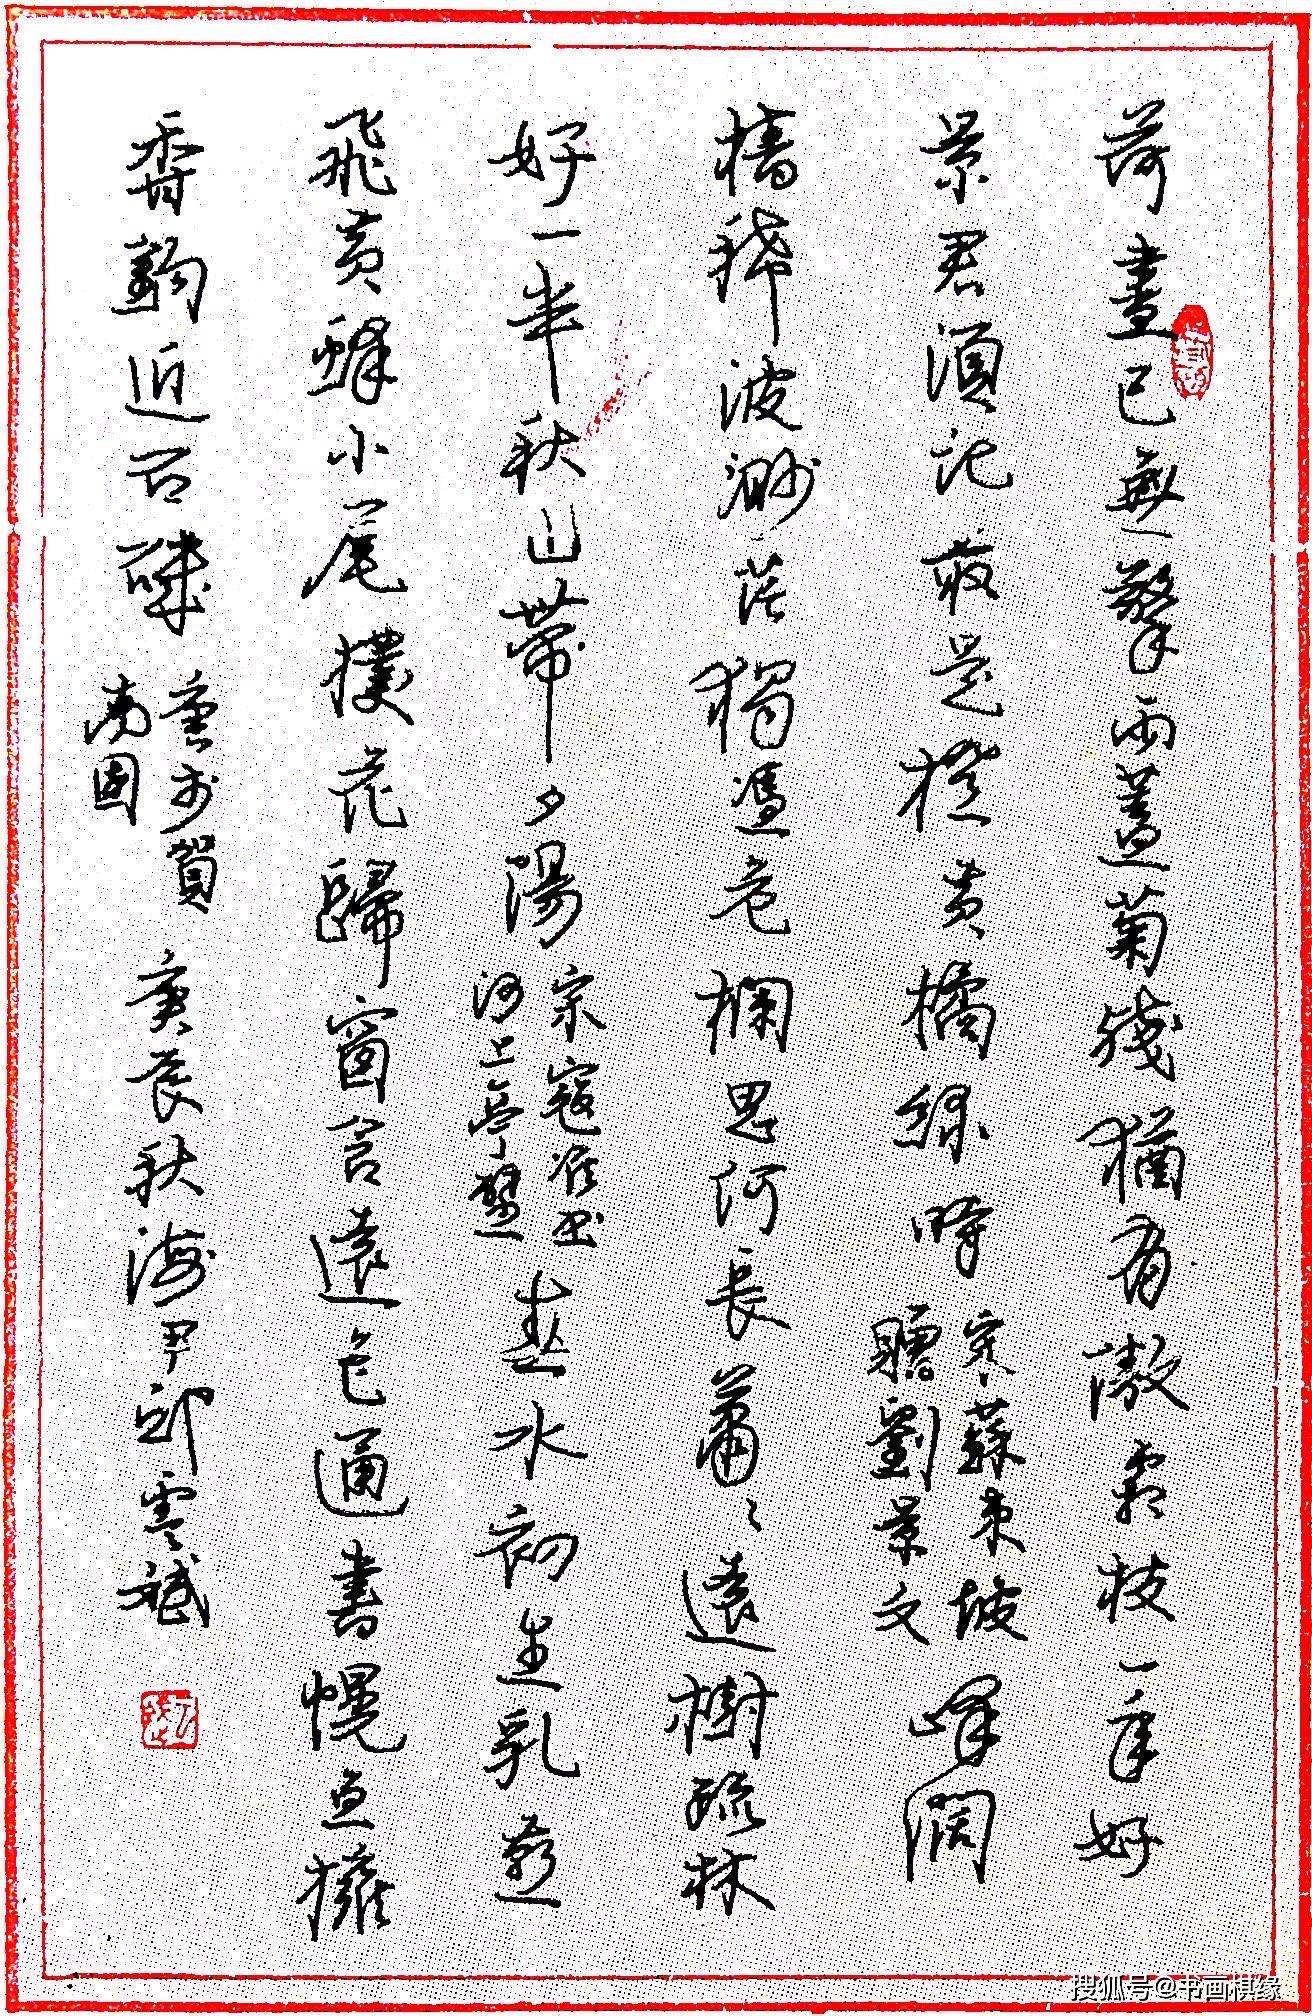 荷盡已無擎雨蓋菊殘猶有傲霜枝一年好
景君須記最是橙黄橘緑時
宋蘇東坡
贈劉景文
闊
檣稀波渺茫獨憑危欄思何長蕭〻遠樹疏林
好一半秋山帶夕陽
宋寇准書
河上亭壁
春水初生乳燕
飛黄蜂小尾撲花歸窗含遠色通書幌魚擁
香鈎近石磯
唐李賀
南園
庚辰秋海尹邱雲斌
搜狐号@书画棋缘